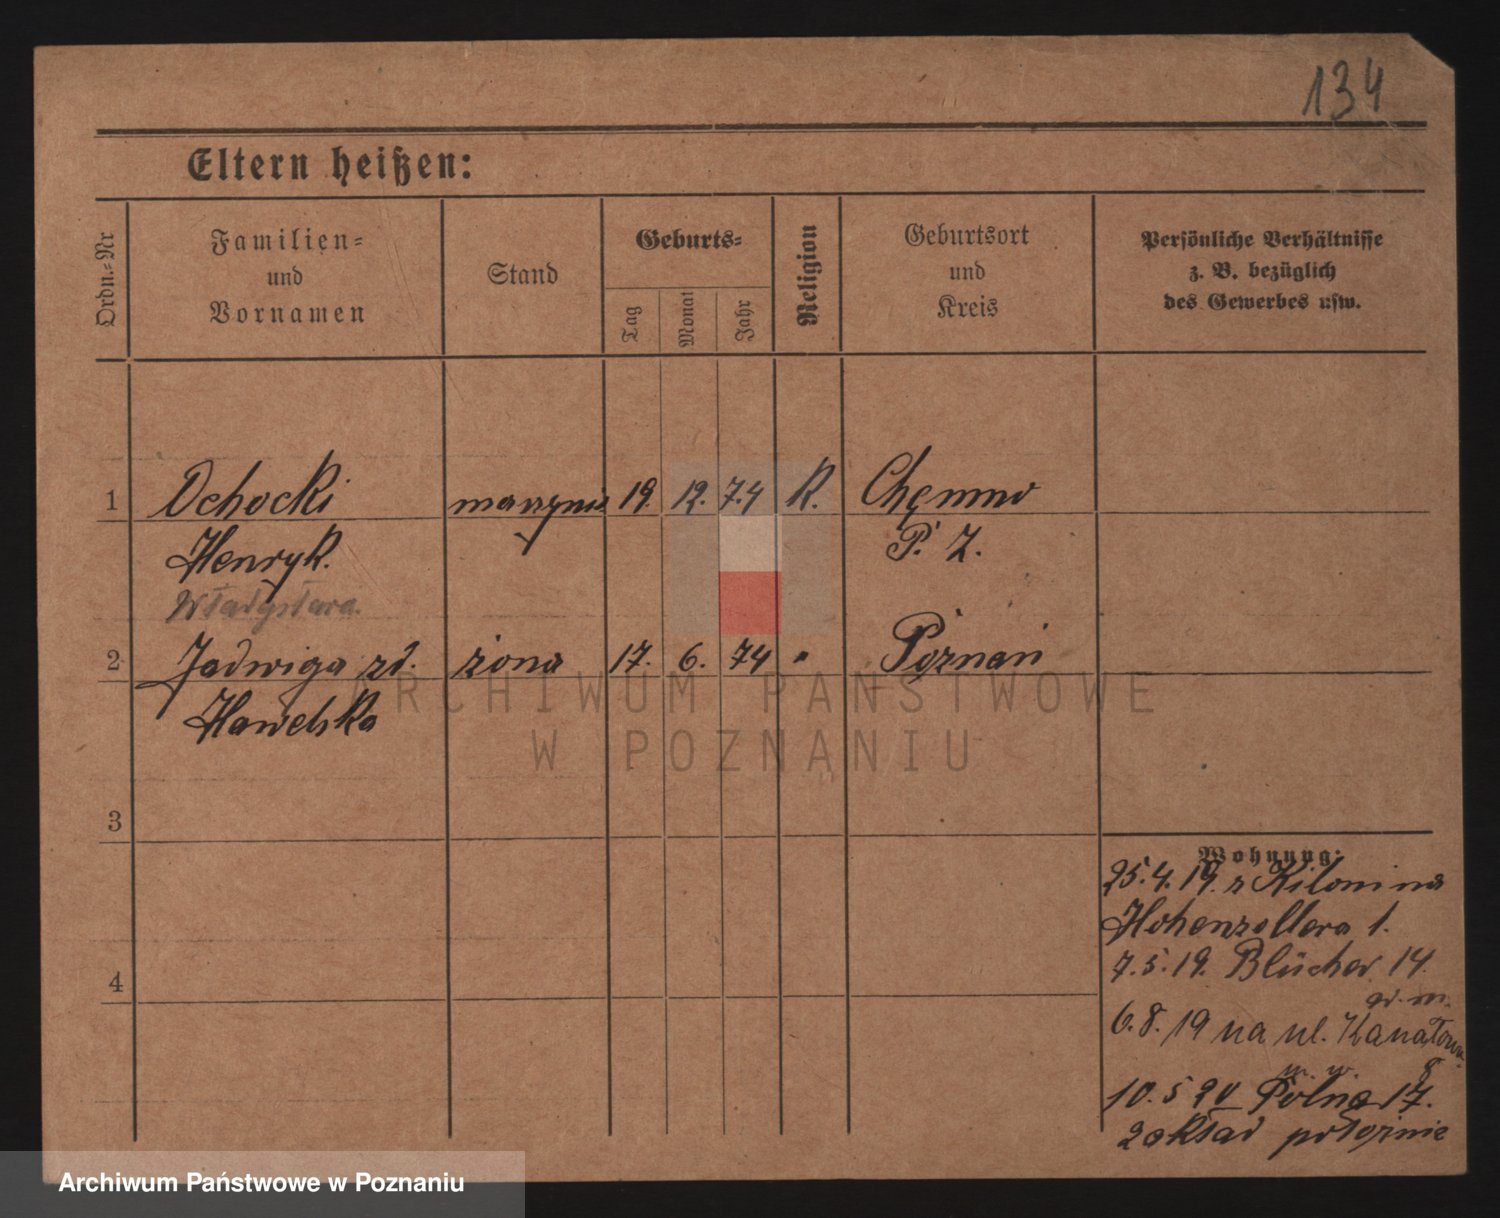 134
Eltern heißen:
Ordn.-Nr
Familien-
und
Vornamen
Stand
Geburts-
Tag
Monat
Jahr
Religion
Geburtsort
und
Kreis
Persönliche Verhältnisse
z. B. bezüglich
des Gewerbes usw.
1 Ochocki 19. 12. 74 R.
Henryk. P. Z.
Władysława
2 Jadwiga zd. żona 17. 6. 74 " Poznań
Hawelska
ARCHIWUM PAŃSTWOWE
W POZNANIU
3
4
Wohnung:
25.4.19. z na
Hohenzollern 1.
7.5.19. Blücher 14.
6.8.19 na ul. Kanałowa
8
10.5 20 Polna 17.
zakład położnic
Archiwum Państwowe w Poznaniu